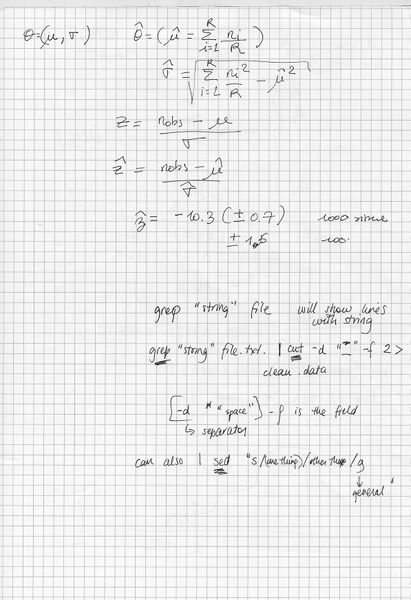 θ=(μ, σ) θ̂ = (μ̂ = Σ_{i=1}^{R} n_i/R)
σ̂ = √(Σ_{i=1}^{R} n_i²/R − μ̂²)
z = (nobs − μ)/σ
ẑ = (nobs − μ̂)/σ̂
ẑ = −10.3 (± 0.7) 1000
± 1.5 100
grep "string" file will show lines
with string
grep "string" file.txt. | cut -d "" -f 2 >
clean.data
[-d " "space"] -f is the field
↳ separator
can also | sed "s/(one thing)/other thing/g
↓
general"